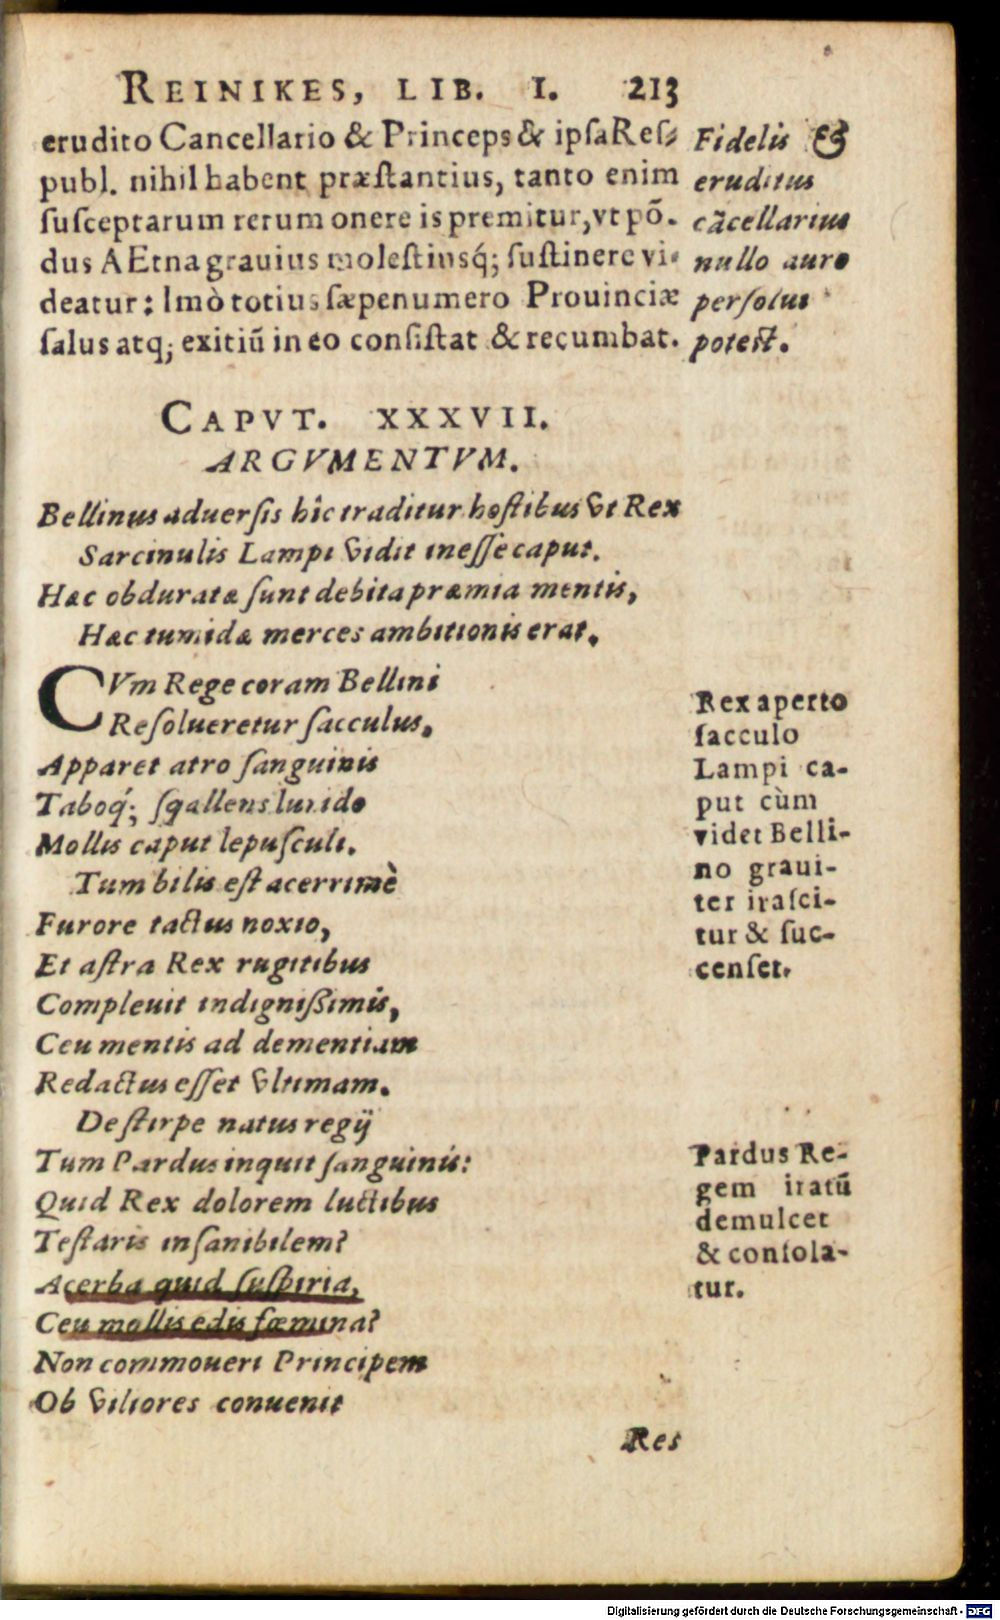 REINIKES, LIB. I. 213
erudito Cancellario & Princeps & ipsa Res-
publ. nihil habent præstantius, tanto enim
susceptarum rerum onere is premitur, vt põ-
dus AEtna grauius molestiusq́; sustinere vi-
deatur: Imò totius sæpenumero Prouinciæ
salus atq; exitiũ in eo consistat & recumbat.
Fidelis &
eruditus
cãcellarius
nullo auro
persolui
potest.
CAPVT. XXXVII.
ARGVMENTVM.
Bellinus aduersis hîc traditur hostibus vt Rex
Sarcinulis Lampi vidit inesse caput.
Hæc obduratæ sunt debita præmia mentis,
Hæc tumidæ merces ambitionis erat.
CVm Rege coram Bellini
Resolueretur sacculus,
Apparet atro sanguinis
Taboq́; sqallens lurido
Mollis caput lepusculi.
Tum bilis est acerrimè
Furore tactus noxio,
Et astra Rex rugitibus
Compleuit indignißimis,
Ceu mentis ad dementiam
Redactus esset vltimam.
De stirpe natus regij
Tum Pardus inquit sanguinis:
Quid Rex dolorem luctibus
Testaris insanibilem?
Acerba quid suspiria,
Ceu mollis edis fœmina?
Non commoueri Principem
Ob viliores conuenit
Rex aperto
sacculo
Lampi ca-
put cùm
videt Belli-
no graui-
ter irasci-
tur & suc-
censet.
Pardus Re-
gem iratũ
demulcet
& consola-
tur.
Res
Digitalisierung gefördert durch die Deutsche Forschungsgemeinschaft - DFG